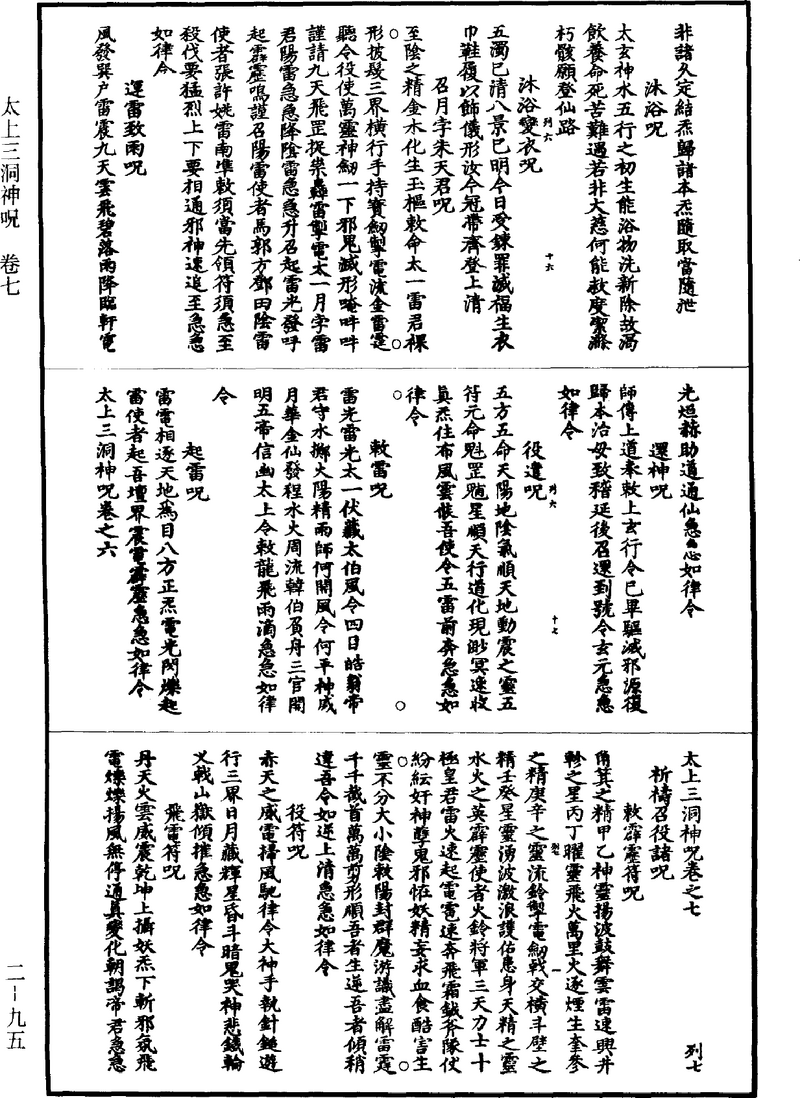 非諸久定結炁歸諸本炁隨取當隨泄
沐浴呪
太玄神水五行之初生能浴物洗新除故渴
飲養命死苦難遇若非大慈何能救度潔滌
朽骸願登仙路
沐浴變衣呪
列六
十六
五濁已清八景已明今日受鍊罪滅福生衣
巾鞋履以飾儀形汝今冠帶齊登上清
召月孛朱天君呪
至陰之精金木化生玉樞敕命太一雷君裸
形披髮三界橫行手持寶劒掣電滾金雷霆
聽令役使萬靈神劒一下邪鬼滅形唵吽吽
謹請九天飛罡捉祟轟雷掣電太一月孛雷
君陽雷急急降陰雷急急升召起雷光發呼
起霹靂鳴謹召陽雷使者馬郭方鄧田陰雷
使者張許姚雷南準敕須當先領符須急至
殺伐要猛烈上下要相通邪神速追至急急
如律令
運雷致雨呪
風發巽户雷震九天雲飛碧落雨降臨軒電
光烜赫助道通仙急急如律令
還神呪
師傳上道奉敕上玄行令已畢驅滅邪源復
歸本治毋致稽延後召還到號令玄元急急
如律令
役遣呪
列六
十七
五方五命天陽地陰氣順天地動震之靈五
符元命魁罡隨星順天行道化現眇冥速收
真炁住布風雲駭吾使令五雷前奔急急如
律令
敕雷呪
雷光雷光太一伏藏太伯風令四日皓翁帝
君守水擲火陽精雨師何開風令何平神威
月華金仙發程水火周流韓伯負舟三官開
明五帝信幽太上令敕龍飛雨滴急急如律
令
起雷呪
雷電相逐天地爲目八方正炁電光閃爍起
雷使者起吾壇界震電霹靂急急如律令
太上三洞神呪卷之六
太上三洞神呪卷之七
列七
祈禱召役諸呪
敕霹靂符呪
角箕之精甲乙神靈揚波鼓舞雲雷速興井
軫之星丙丁曜靈飛火萬里火逐煙生奎參
之精庚辛之靈流鈴掣電劒戟交橫斗壁之
列七
一
精壬癸星靈湧波激浪護佑患身天精之靈
水火之英霹靂使者火鈴將軍三天力士十
極皇君雷火速起電雹速奔飛霜鉞斧隊仗
紛紜奸神孽鬼邪怪妖精妄求血食酷害生
靈不分大小陰敕陽封群魔游議盡解雷霆
千千截首萬萬剪形順吾者生逆吾者傾稍
違吾令如逆上清急急如律令
役符呪
赤天之威電掃風馳律令大神手執針鎚遊
行三界日月藏輝星昏斗暗鬼哭神悲鐵輪
乂戟山嶽傾摧急急如律令
飛雷符呪
丹天火雲威震乾坤上攝妖炁下斬邪氛飛
電爍爍揚風無停通真變化朝謁帝君急急
太上三洞神呪 卷七
二-九五